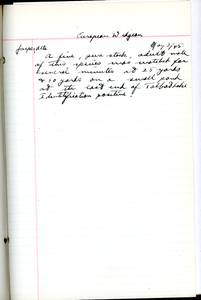 European Widgeon
A fine, pure stock, adult male
of this species was watched for
several minutes at 25 yards
& 50 yards on a small pond
at the east end of
Identification positive!